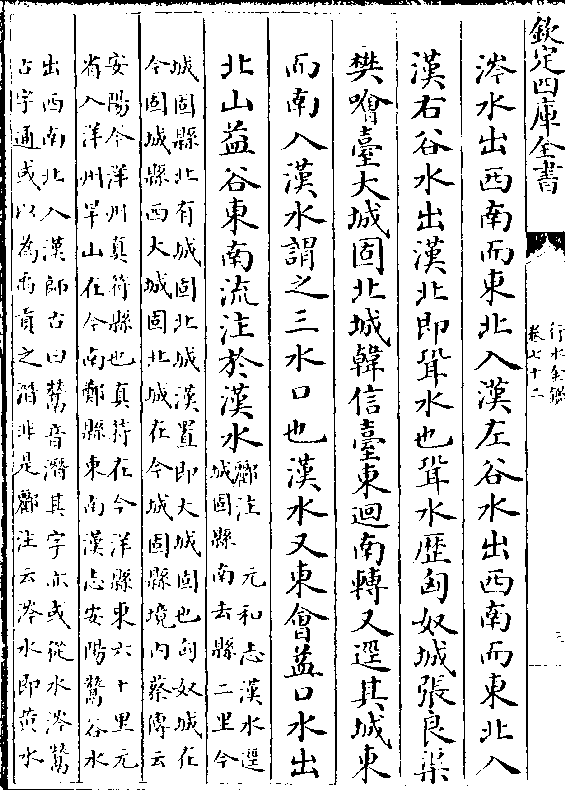 欽定四庫全書
行水金鑑
卷七十二
三
涔水出西南而東北入漢左谷水出西南而東北入
漢右谷水出漢北即聓水也聓水歷匈奴城張良渠
樊噲臺大城固北城韓信臺東迴南轉又逕其城東
而南入漢水謂之三水口也漢水又東會益口水出
北山益谷東南流注於漢水
酈注 元和志漢水逕
城固縣南去縣二里今
城固縣北有城固北城漢置即大城固也匈奴城在
今固城縣西大城固北城在今城固縣境内蔡傳云
安陽今洋州真符縣也真符在今洋縣東六十里元
省入洋州旱山在今南鄭縣東南漢志安陽鬵谷水
出西南北入漢師古曰鬵音潛其字亦或從水涔鬵
古字通或以為禹貢之潛非是酈注云涔水即黄水